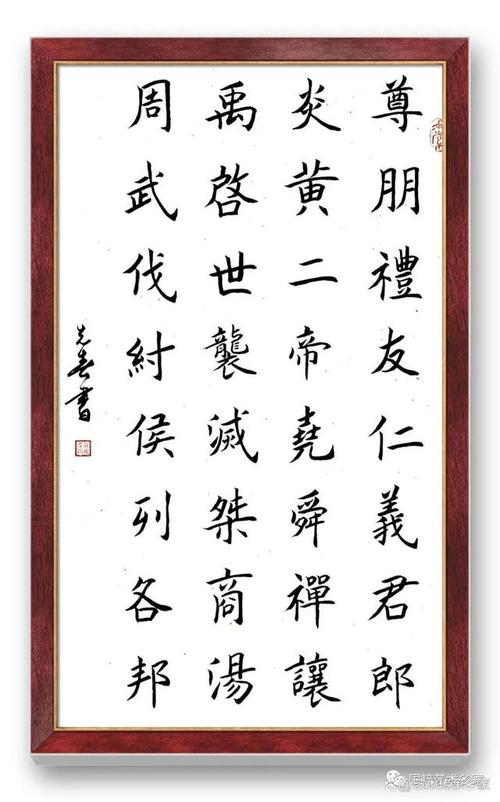 尊朋禮友仁義君郎
炎黄二帝堯舜禪讓
禹啓世襲滅桀商湯
周武伐紂侯列各邦
先春書